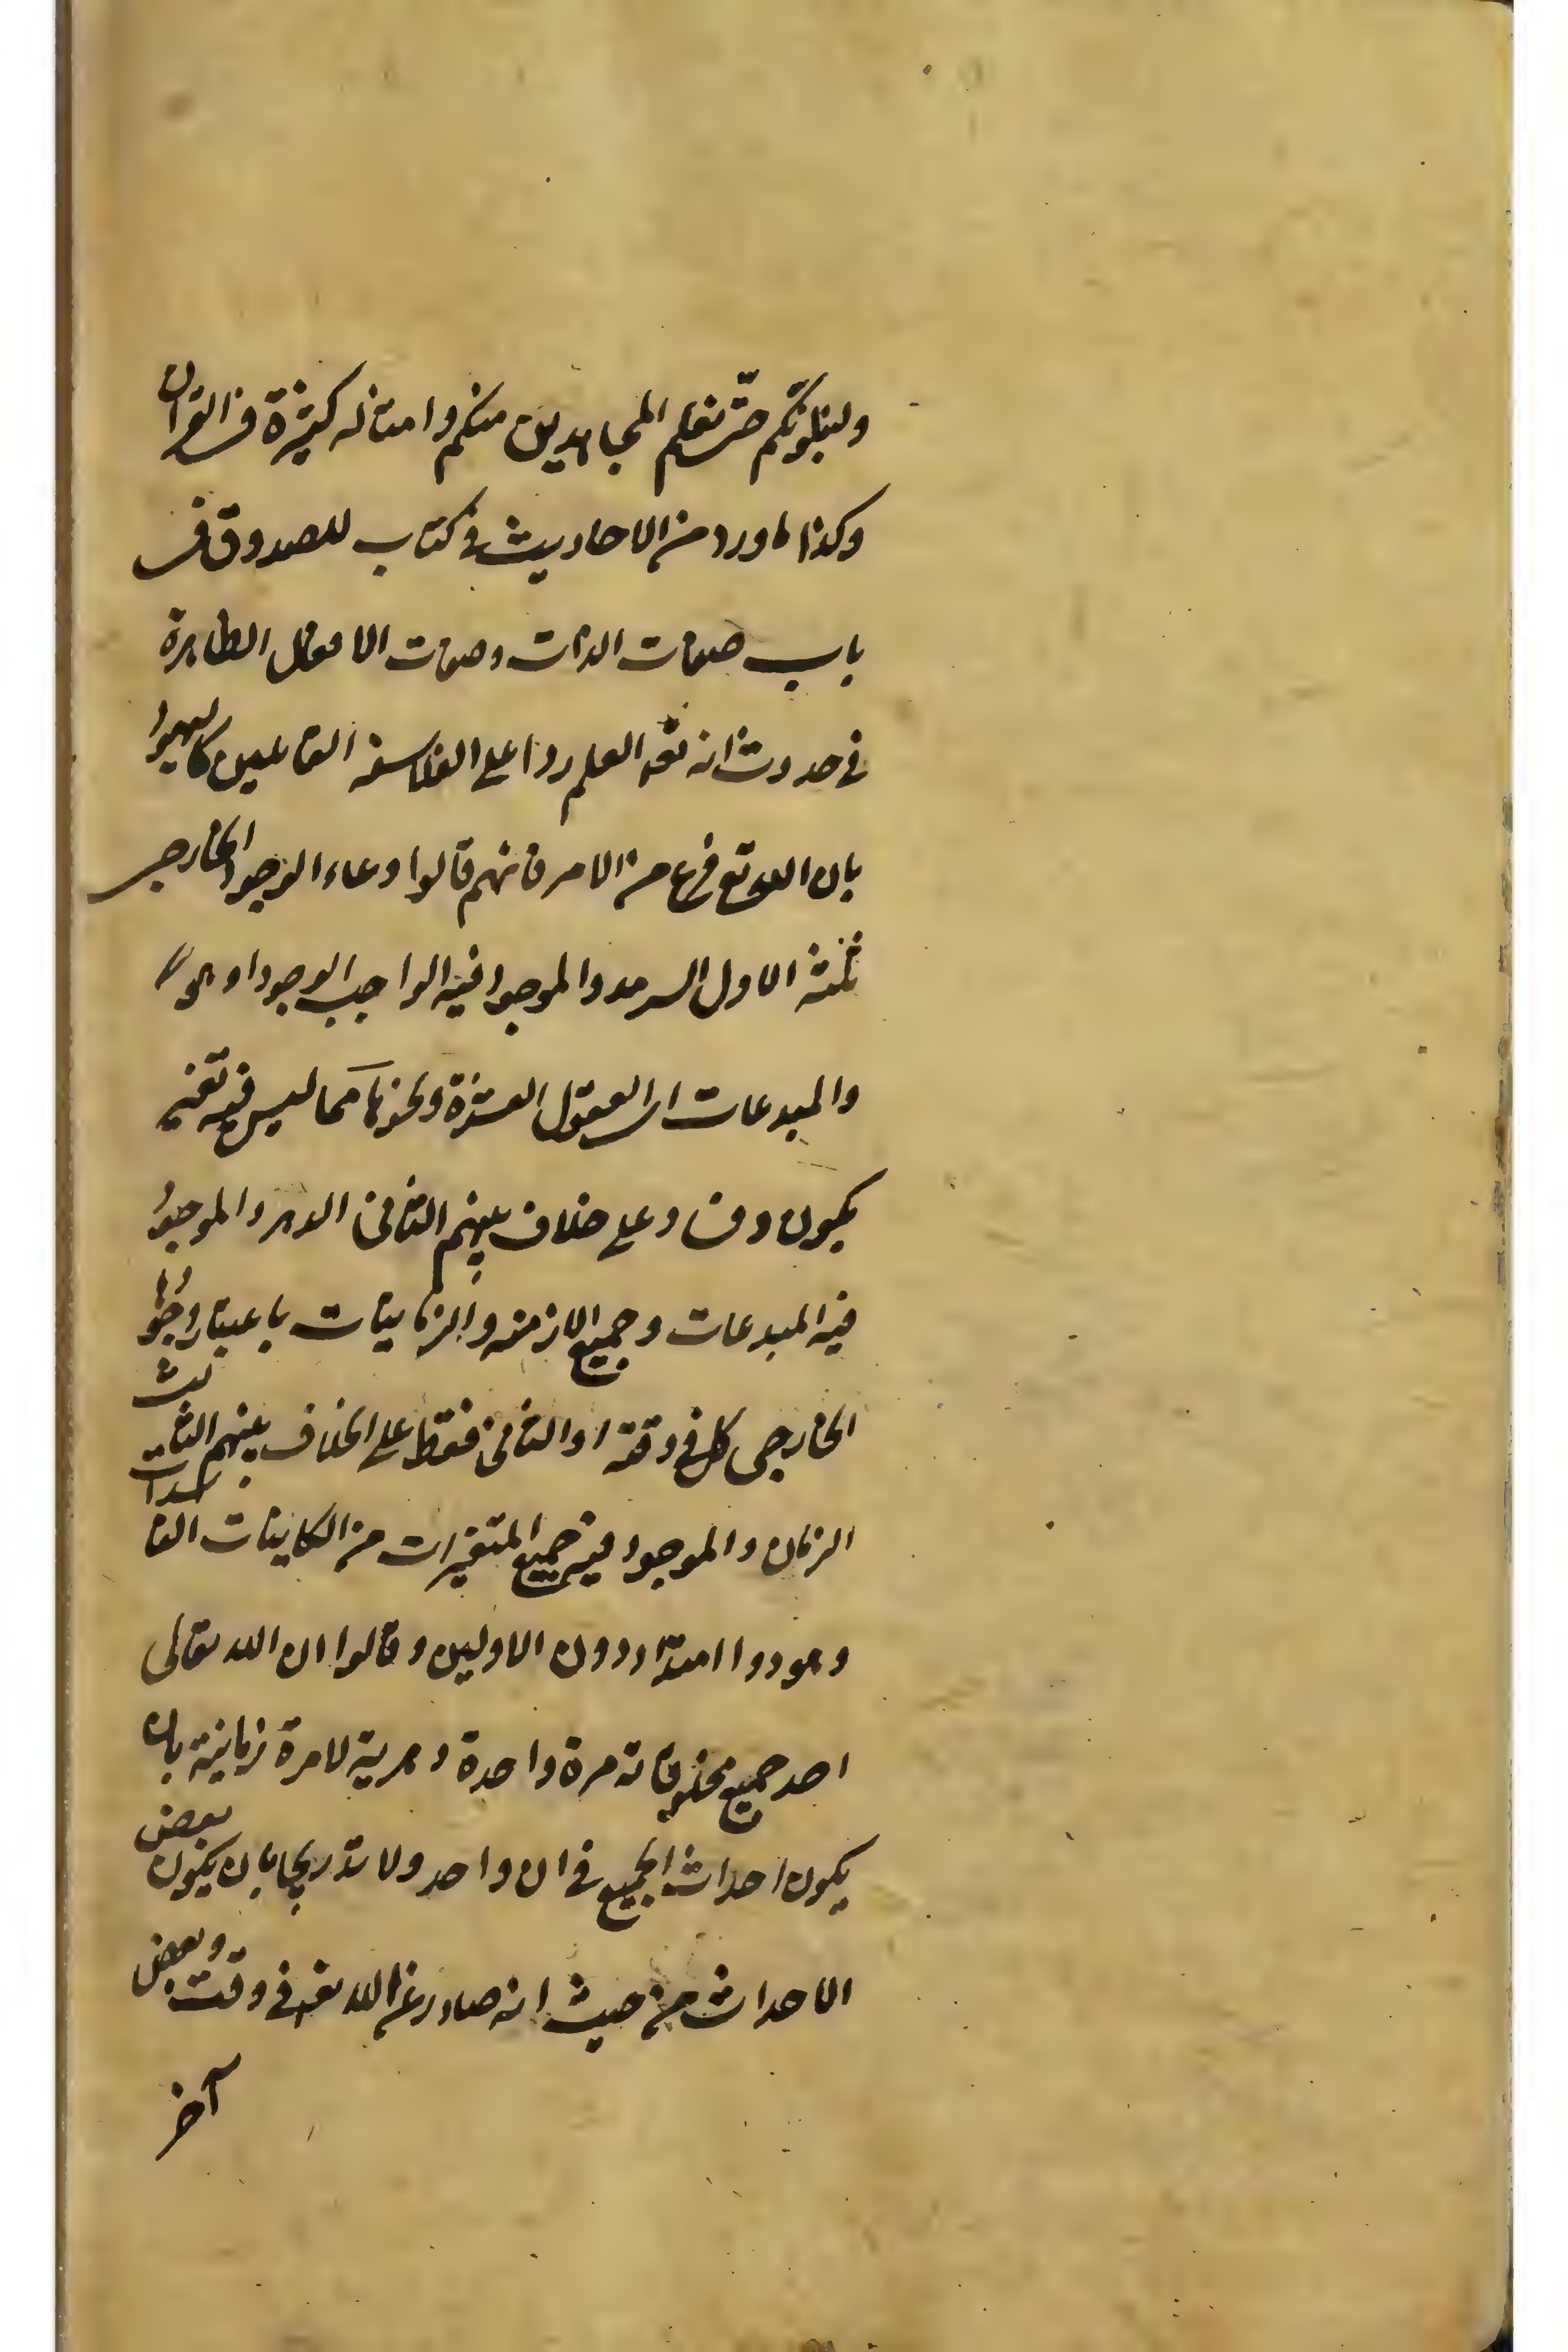 ولنبلونّكم حتّى نعلم المجاهدين منكم وامثاله كثيرة في القرآن
وكذا ما ورد من الاحاديث في كتاب للصدوق في
باب صفات الذات وصفات الافعال الظاهرة
في حدوث انه تعه العلم ردا على الفلاسفه القائلين كاليهود
بان الله تع فرغ من الامر فانهم قالوا وعاء الوجود الخارجي
ثلثة الاول السرمد والموجود فيه الواجب الوجود او هو
والمبدعات اي العقول العشرة ونحوها مما ليس فيه تغير
بكون وفساد على خلاف بينهم الثاني الدهر والموجود
فيه المبدعات وجميع الازمنه والزمانيات باعتبار وجودها
الخارجي كل في وقته او الثاني فقط على الخلاف بينهم الثالث
الزمان والموجود فيه جميع المتغيرات من الكاينات الفاسدات
وهو ذو امتداد دون الاولين وقالوا ان الله تعالى
احد جميع مخلوقاته مرة واحدة دهرية لا مرة زمانية بان
يكون احداث الجميع في ان واحد ولا تدريجا بان يكون بعض
الاحداث من حيث انه صادر عن الله تعه في وقت وبعض
آخر